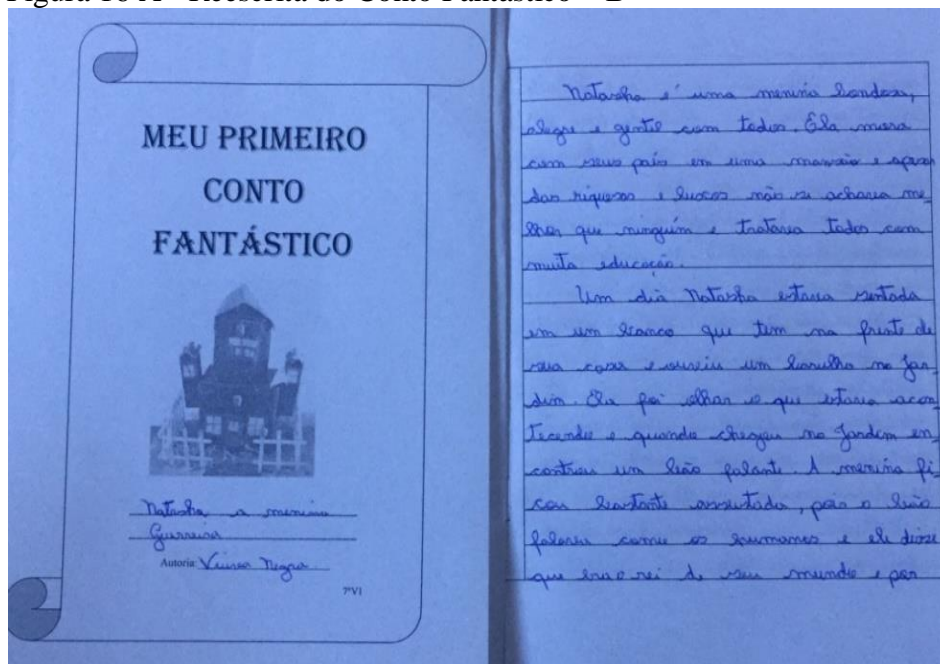 Figura 16 A - Reescrita do Conto Fantástico – B
MEU PRIMEIRO
CONTO
FANTÁSTICO
Natasha a menina
Guerreira
Autoria: Viúva Negra
7ºV1
Natasha é uma menina bondosa,
alegre e gentil com todos. Ela mora
com seus pais em uma mansão e apesar
das riquezas e luxos não se achava me_
lhor que ninguém e tratava todos com
muita educação.
Um dia Natasha estava sentada
em um banco que tem na frente de
sua casa e ouviu um barulho no Jar_
dim. Ela foi olhar o que estava acon_
tecendo e quando chegou no Jardim en_
controu um leão falante. A menina fi_
cou bastante assustada, pois o leão
falava como os humanos e ele disse
que era o rei de seu mundo e por